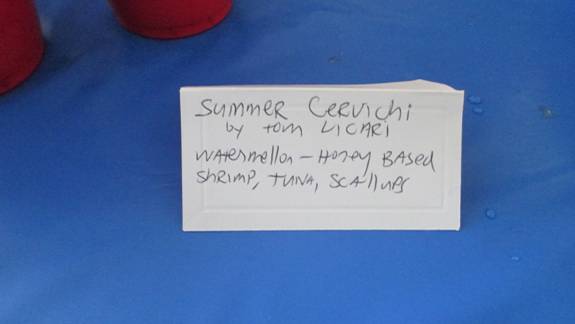 Summer Cervichi
by Tom Licari
Watermellon - Honey Based
Shrimp, Tuna, Scallups